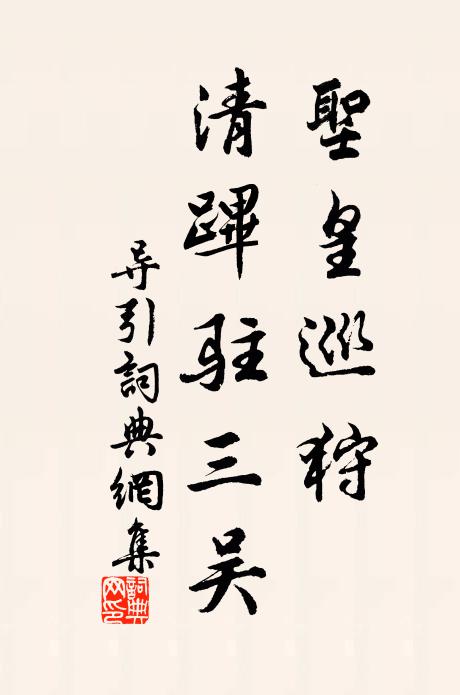 聖皇巡狩
清蹕駐三吴
导引詞典網集
詞典网印